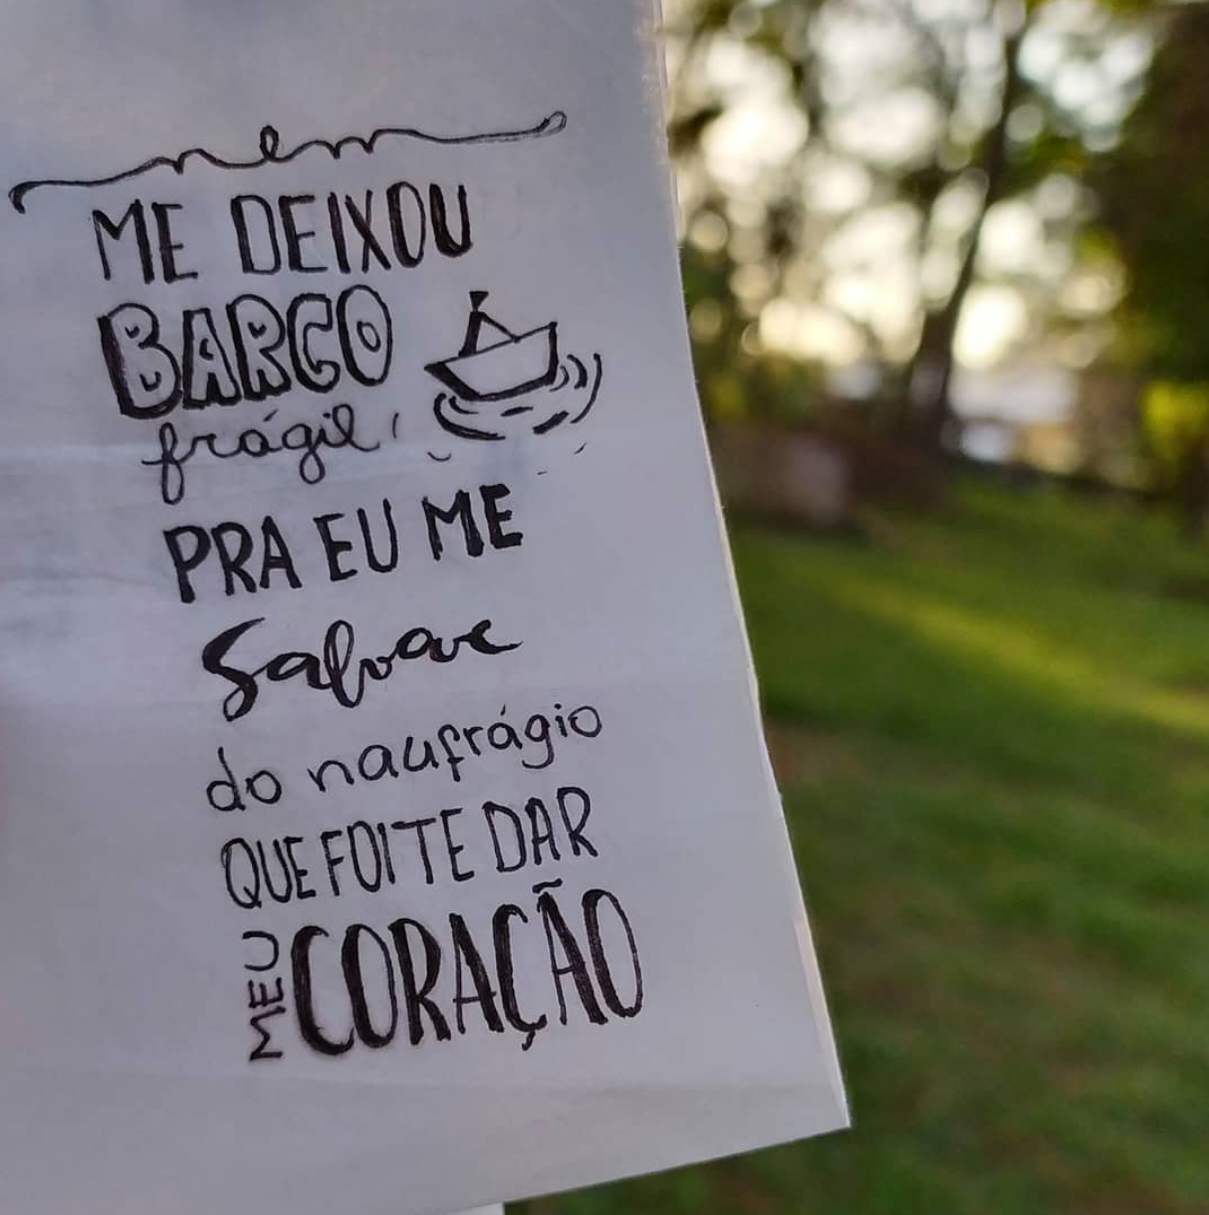 nem
ME DEIXOU
BARCO
frágil!
PRA EU ME
Salvar
do naufrágio
QUE FOI TE DAR
MEU CORAÇÃO